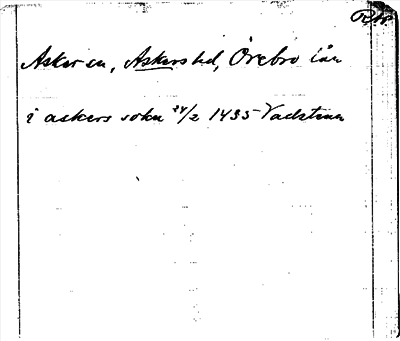 Asker sn, Askers hd, Örebro län
i askers sokn 24/2 1435 Vadstena